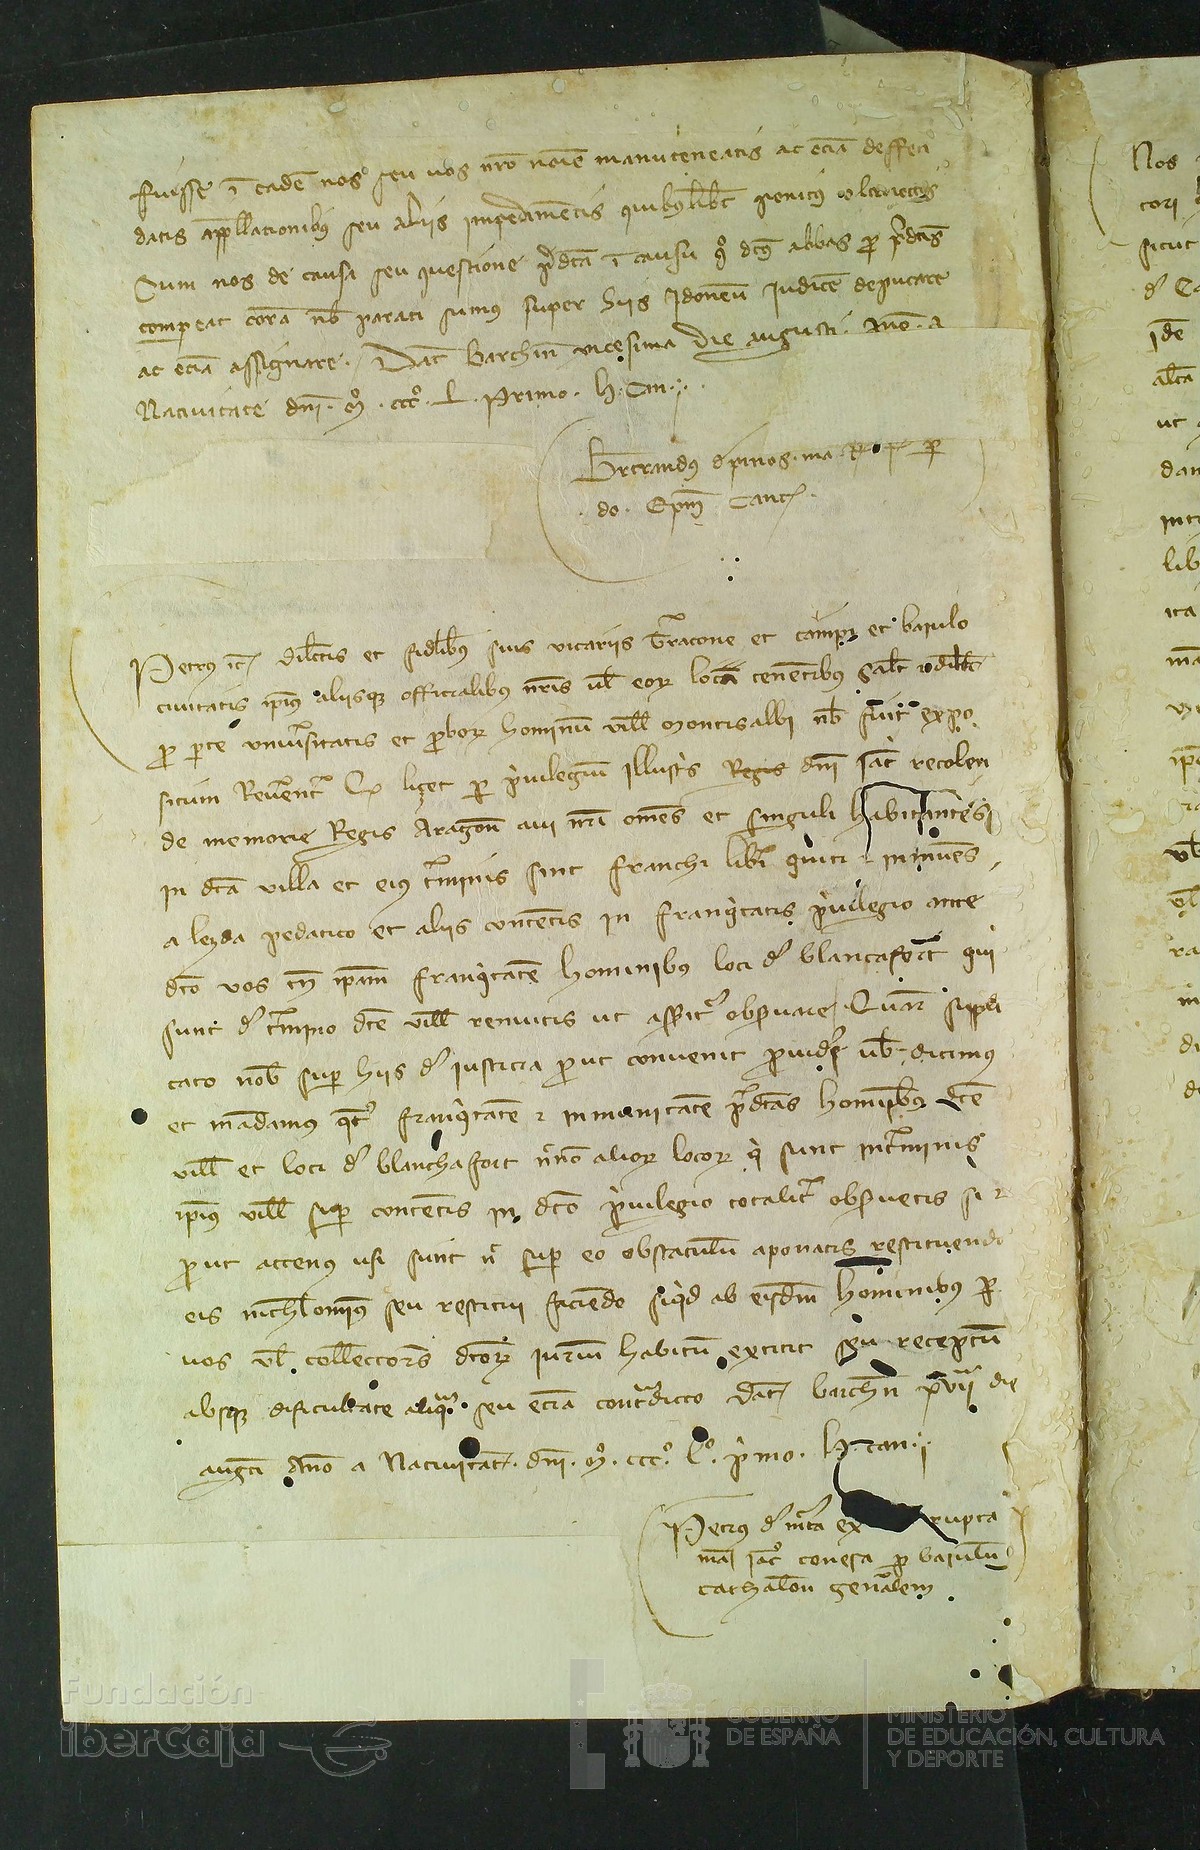 fuisse in eadem nos seu vos nro noie manuteneatis ac ecia deffen
datis appellacionibus seu aliis impedimentis quibuslibet
Cum nos de causa seu questione pdcta in causu quo dcus abbas pro pdctis
compeat cora nob parati sumus super hiis Idoneum Iudice deputare
ac ecia assignare. Dat barchin vicesima die augusti. Ano. a
Nativitate dni. Mo. cccº. L. primo. H. Can.
Bertrandus dpinos. ma R p per
do. Epm Canc.
Petrus etc dilectis et fidelibus suis vicariis Terracone et campi et baiulo
civitatis ipius aliisque officialibus nris vel eor loca tenentibus salt dilect
pro parte universitatis et proborum hominum ville Montisalbi nob fuit expo
situm Reverent Q licet per privilegium Illustris Regis dni Iac recolen
de memorie Regis Aragon avi nri omes et singuli habitantes
in dcta villa et eius terminis sint franchi liberi quiti et inmunes
a lezda pedatico et aliis contentis in franquitatis privilegio ante
dco vos tn ipam franquitate hominibus loci de blancafort qui
sunt de termino dce ville renuitis ut asserit observare. Quare suppli
cato nob super hiis de iusticia prout convenit provideri vob dicimus
et mandamus qt franquitate et inmunitate pdctas hominibus dce
ville et loci de blanchafort nno alior locor q sunt in terminis
ipius ville super contentis in dco privilegio totalit observetis si et
prout actenus usi sunt n super eo obstaculum aponatis restituendo
eis nichilominus seu restitui faciendo siquid ab eisdem hominibus per
vos vel collectores dcor iurium habitum extitit seu receptum
absque dificultate aliqua seu ecia contradicto Dat barchn die
augti Ano a Nativitate. dni. Mo. cccº. Lº. primo. H. Can.
Petrus de ex rupta
mat Iac conesa pro baiulum
cathalon generalem
Nos
cori
sicut
de Ca
ide
alta
ut
dan
inte
lib
ita
ma
ipe
vel
ra
in
di
de
Fundación
iberCaja
GOBIERNO
DE ESPAÑA
MINISTERIO
DE EDUCACIÓN, CULTURA
Y DEPORTE